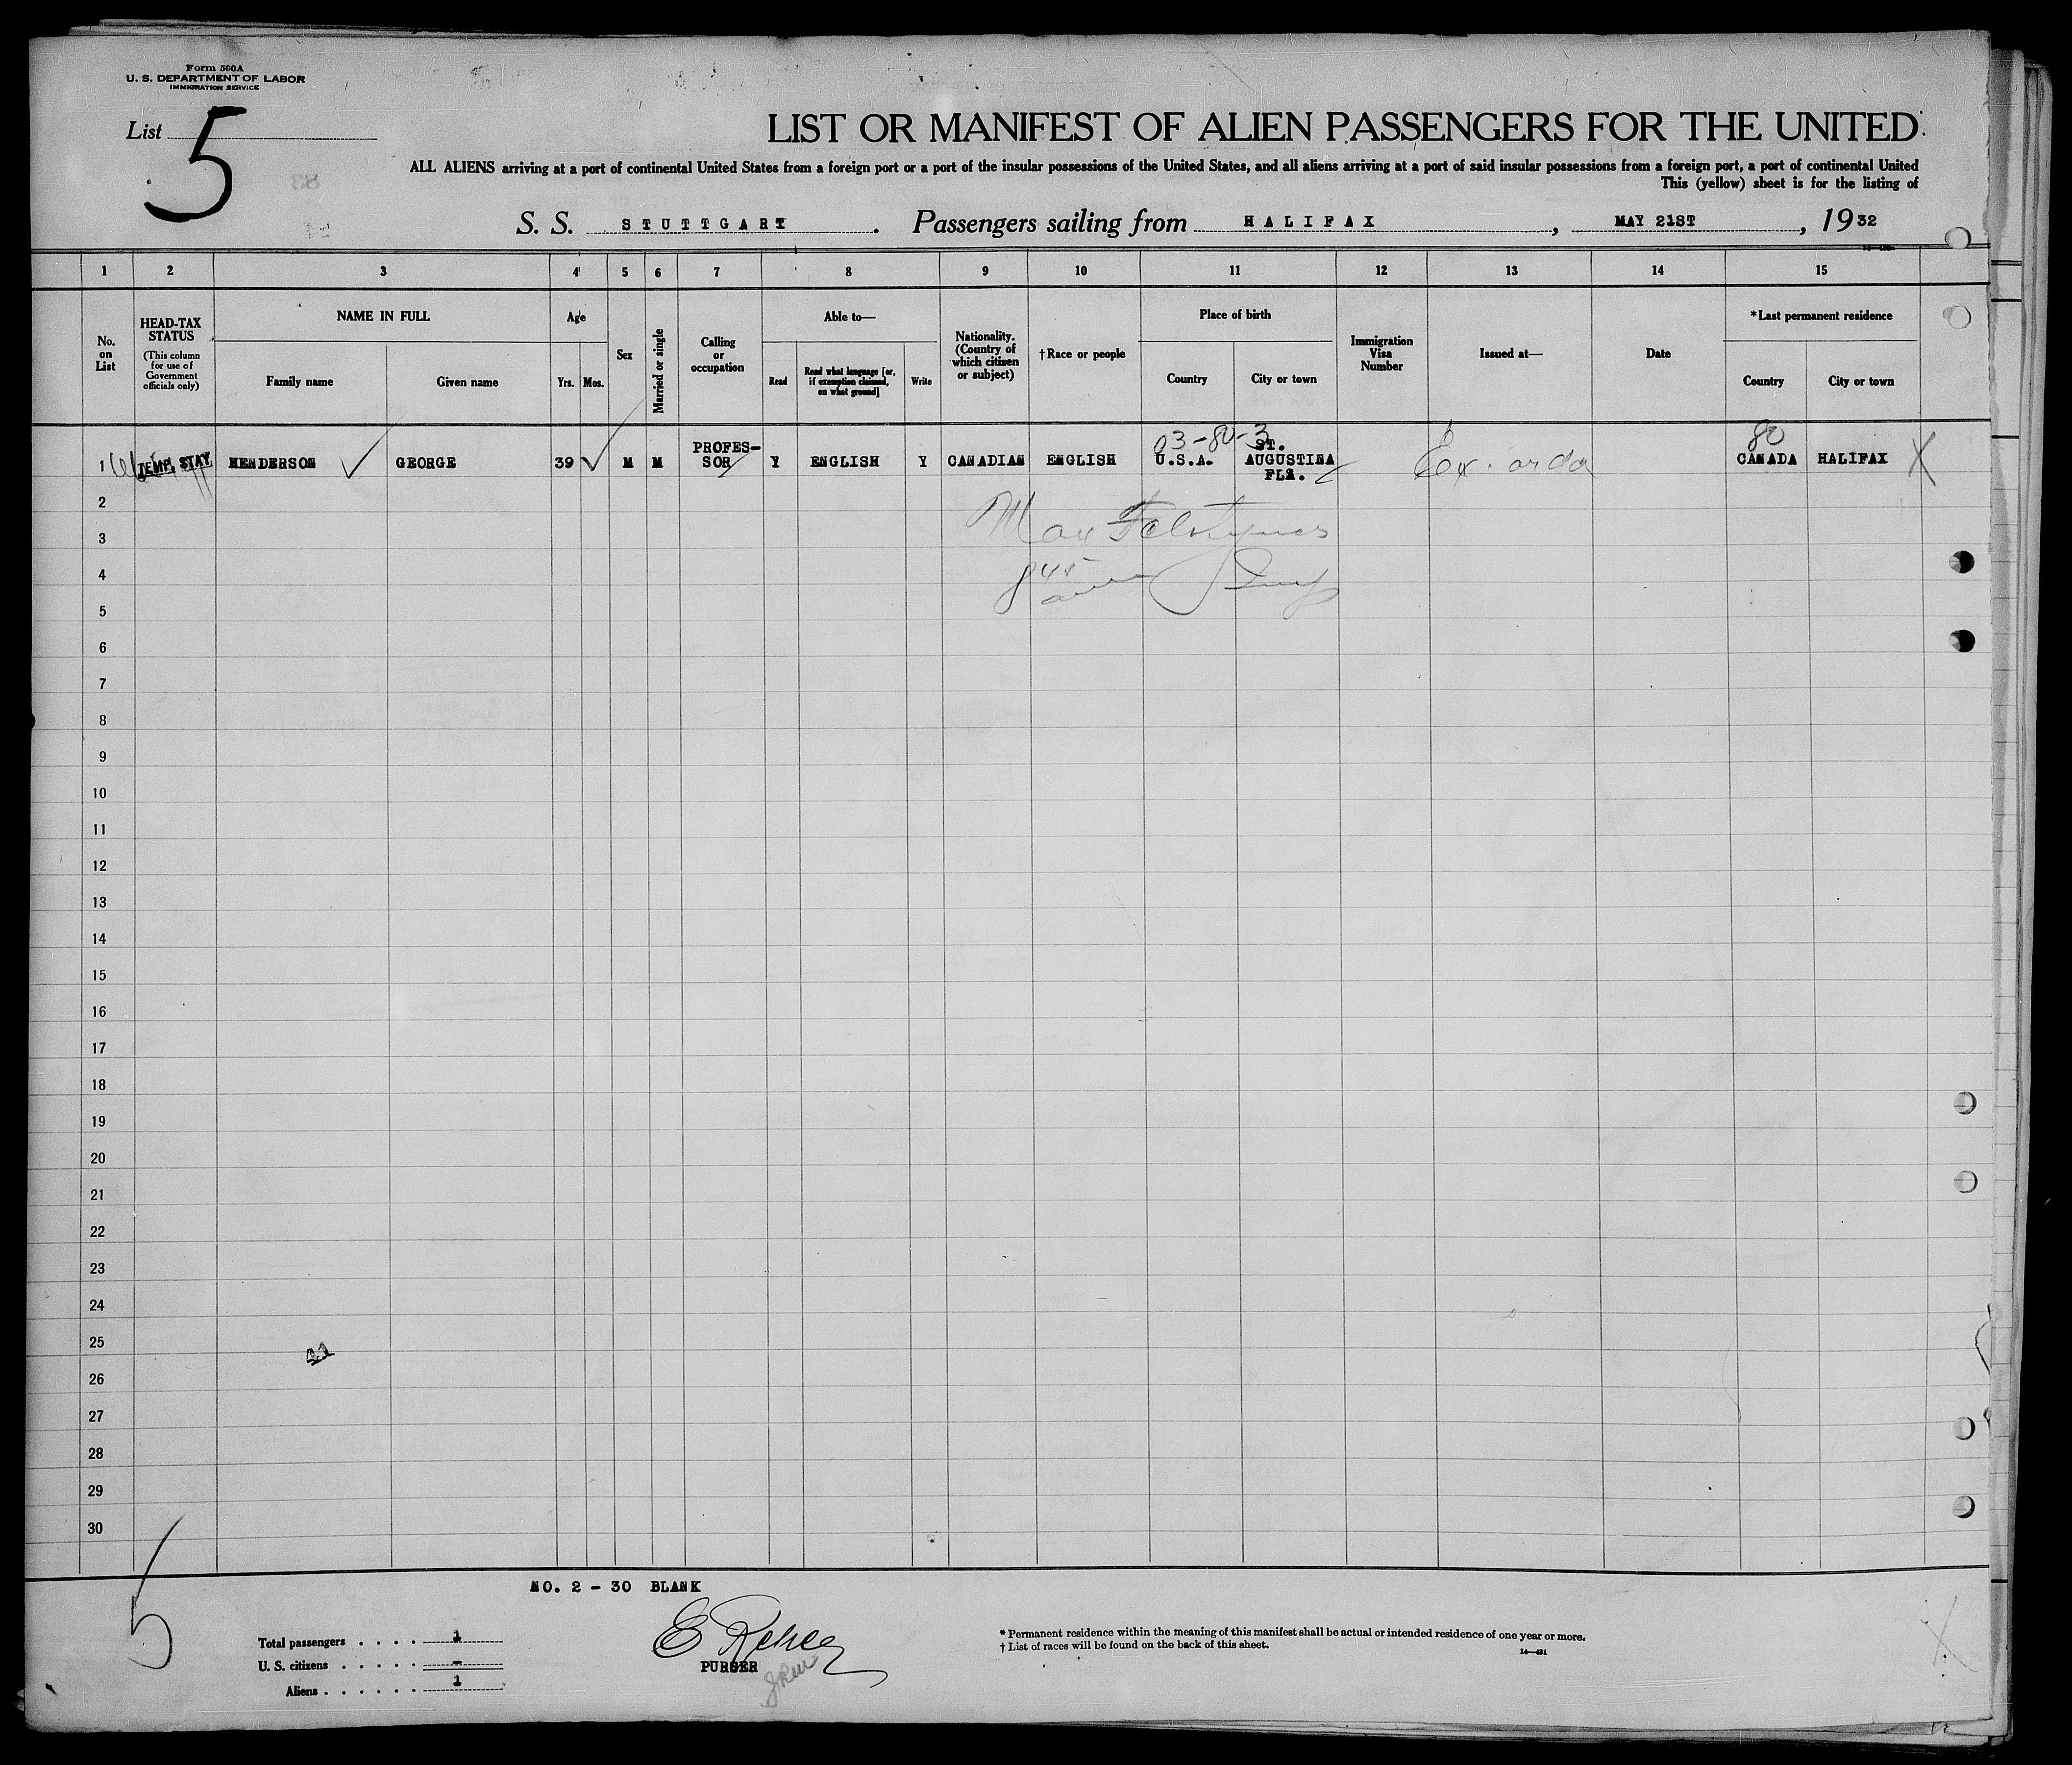 Form 500A
U. S. DEPARTMENT OF LABOR
IMMIGRATION SERVICE
List 5
LIST OR MANIFEST OF ALIEN PASSENGERS FOR THE UNITED
ALL ALIENS arriving at a port of continental United States from a foreign port or a port of the insular possessions of the United States, and all aliens arriving at a port of said insular possessions from a foreign port, a port of continental United
This (yellow) sheet is for the listing of
S. S. STUTTGART. Passengers sailing from HALIFAX, MAY 21ST, 1932
1 2 3 4 5 6 7 8 9 10 11 12 13 14 15
No. on List
HEAD-TAX STATUS (This column for use of Government officials only)
NAME IN FULL
Family name
Given name
Age
Yrs. Mos.
Sex
Married or single
Calling or occupation
Able to—
Read
Read what language [or, if exemption claimed, on what ground]
Write
Nationality. (Country of which citizen or subject)
† Race or people
Place of birth
Country
City or town
Immigration Visa Number
Issued at—
Date
*Last permanent residence
Country
City or town
03-80-3
80
1 TEMP. STAY HENDERSON GEORGE 39 M M PROFES-SOR Y ENGLISH Y CANADIAN ENGLISH U.S.A. ST. AUGUSTINA FLA. Ex. CANADA HALIFAX X
2
3 Max
4
5
6
7
8
9
10
11
12
13
14
15
16
17
18
19
20
21
22
23
24
25
26
27
28
29
30
NO. 2 - 30 BLANK
5
Total passengers . . . . 1
U. S. citizens . . . . . -
Aliens . . . . . . 1
PURSER
* Permanent residence within the meaning of this manifest shall be actual or intended residence of one year or more.
† List of races will be found on the back of this sheet.